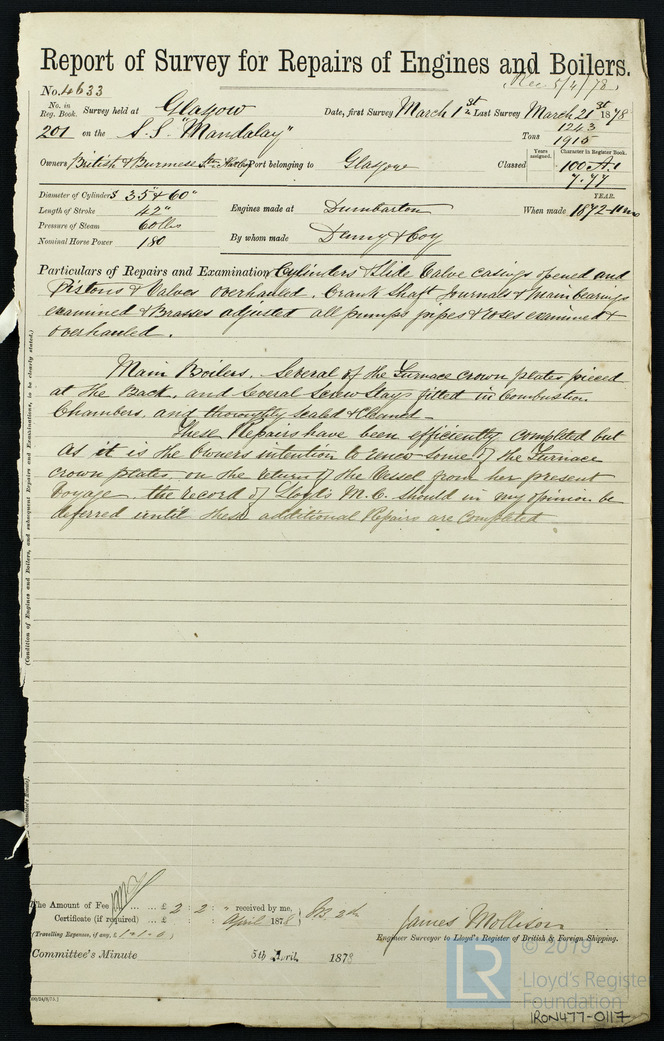 Report of Survey for Repairs of Engines and Boilers.
Rec 5/4/78
No. 4633
No. in Reg. Book. Survey held at Glasgow Date, first Survey March 1st Last Survey March 21st 1878
201 on the S.S. "Mandalay" Tons 1243
1915
Owners British & Burmese Stm Port belonging to Glasgow Classed Years assigned. Character in Register Book.
100 A1
7.77
Diameter of Cylinders 35" & 60" YEAR.
Length of Stroke 42" Engines made at Dumbarton When made 1872-10mo
Pressure of Steam 60 lbs
Nominal Horse Power 180 By whom made Denny & Coy
Particulars of Repairs and Examination Cylinders & Slide Valve casings opened and
Pistons & Valves overhauled. Crank Shaft Journals & Main bearings
examined & Brasses adjusted all pumps pipes & roses examined &
overhauled.
Main Boilers. Several of the Furnace crown plates pieced
at the Back. and several Screw Stays fitted in Combustion
Chambers, and thoroughly scaled & cleaned
These Repairs have been efficiently completed but
As it is the Owners intention to renew some of the Furnace
crown plates, on the return of the Vessel from her present
Voyage. the record of Lloyd's M.C. should in my opinion be
deferred until these additional Repairs are completed
(Condition of Engines and Boilers, and subsequent Repairs and Examinations, to be clearly stated.)
The Amount of Fee ... £ 2 : 2 : " received by me,
Certificate (if required) ... £ : : April 1878
(Travelling Expenses, if any, £ 1-1-0)
James Mollison
Engineer Surveyor to Lloyd's Register of British & Foreign Shipping.
Committee's Minute 5th April 1878
© 2019
LR
Lloyd's Register
Foundation
IRON477-0117